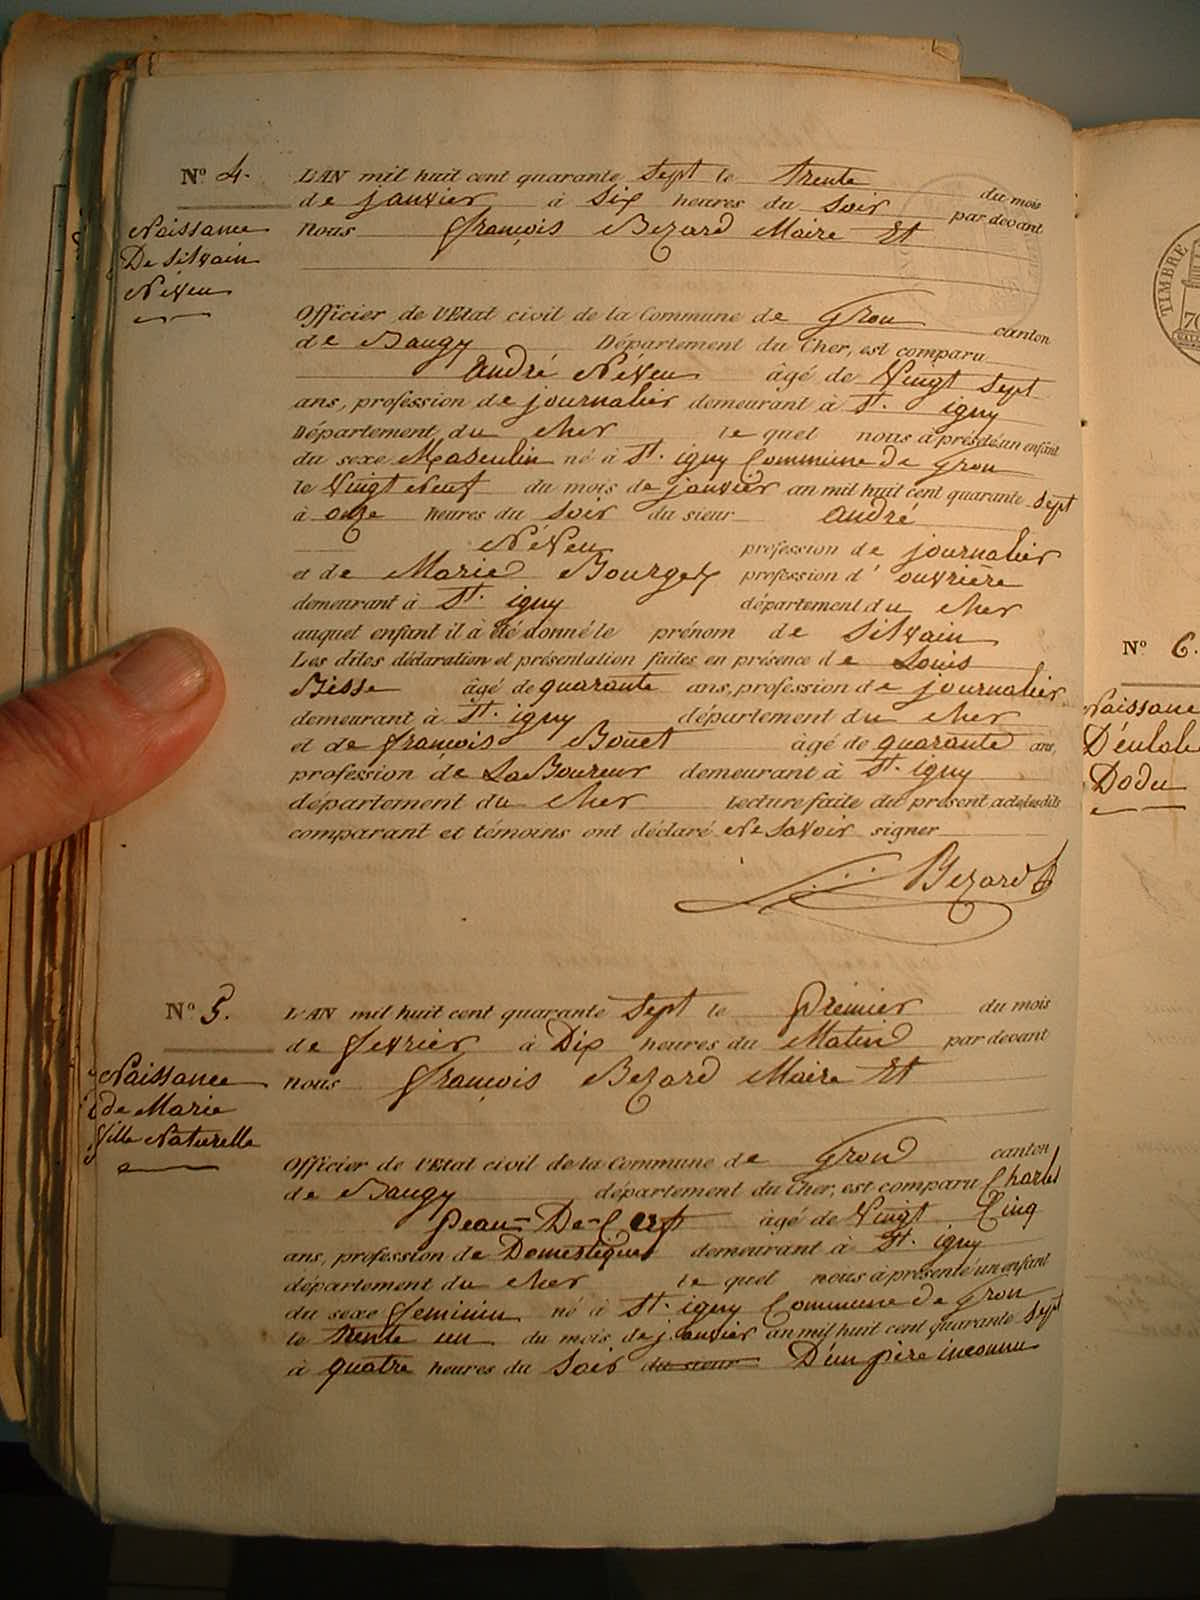 N.º 4. L'AN mil huit cent quarante Sept le trente du mois
de janvier à Six heures du Soir par devant
Naissance
De Silvain
Néveu
nous françois Bezard Maire Et
Officier de l'Etat civil de la Commune de Gron canton
de Baugy Département du Cher, est comparu
André Néveu âgé de Vingt Sept
ans, profession de journalier demeurant à St. igny
Département du cher le quel nous à présenté un enfant
du sexe Masculin né à St. igny Commune de Gron
le Vingt Neuf du mois de janvier an mil huit cent quarante Sept
à onze heures du Soir du sieur André
Néveu profession de journalier
et de Marie Bourget profession d' ouvrière
demeurant à St. igny département du cher
auquel enfant il à été donné le prénom de Silvain
Les dites déclaration et présentation faites en présence de Louis
Bisse âgé de quarante ans, profession de journalier
demeurant à St. igny département du cher
et de françois Bouet âgé de quarante ans,
profession de LaBoureur demeurant à St. igny
département du cher Lecture faite du présent acte, lesdits
comparant et témoins ont déclaré Ne Savoir signer
Bezard
N.º 5. L'AN mil huit cent quarante Sept le Premier du mois
de fevrier à Dix heures du Matin par devant
Naissance
de Marie
fille Naturelle
nous françois Bezard Maire Et
Officier de l'Etat civil de la Commune de Grond canton
de Baugy département du Cher, est comparu Charles
Peau-De-Cerf âgé de Vingt Cinq
ans, profession de Domestique demeurant à St. igny
département du cher le quel nous à présenté un enfant
du sexe feminin né à St. igny Commune de Gron
le trente un du mois de janvier an mil huit cent quarante Sept
à quatre heures du Soir du sieur D'un père inconnu
TIMBRE
70
N.º 6.
Naissance
D'eulalie
Dodu